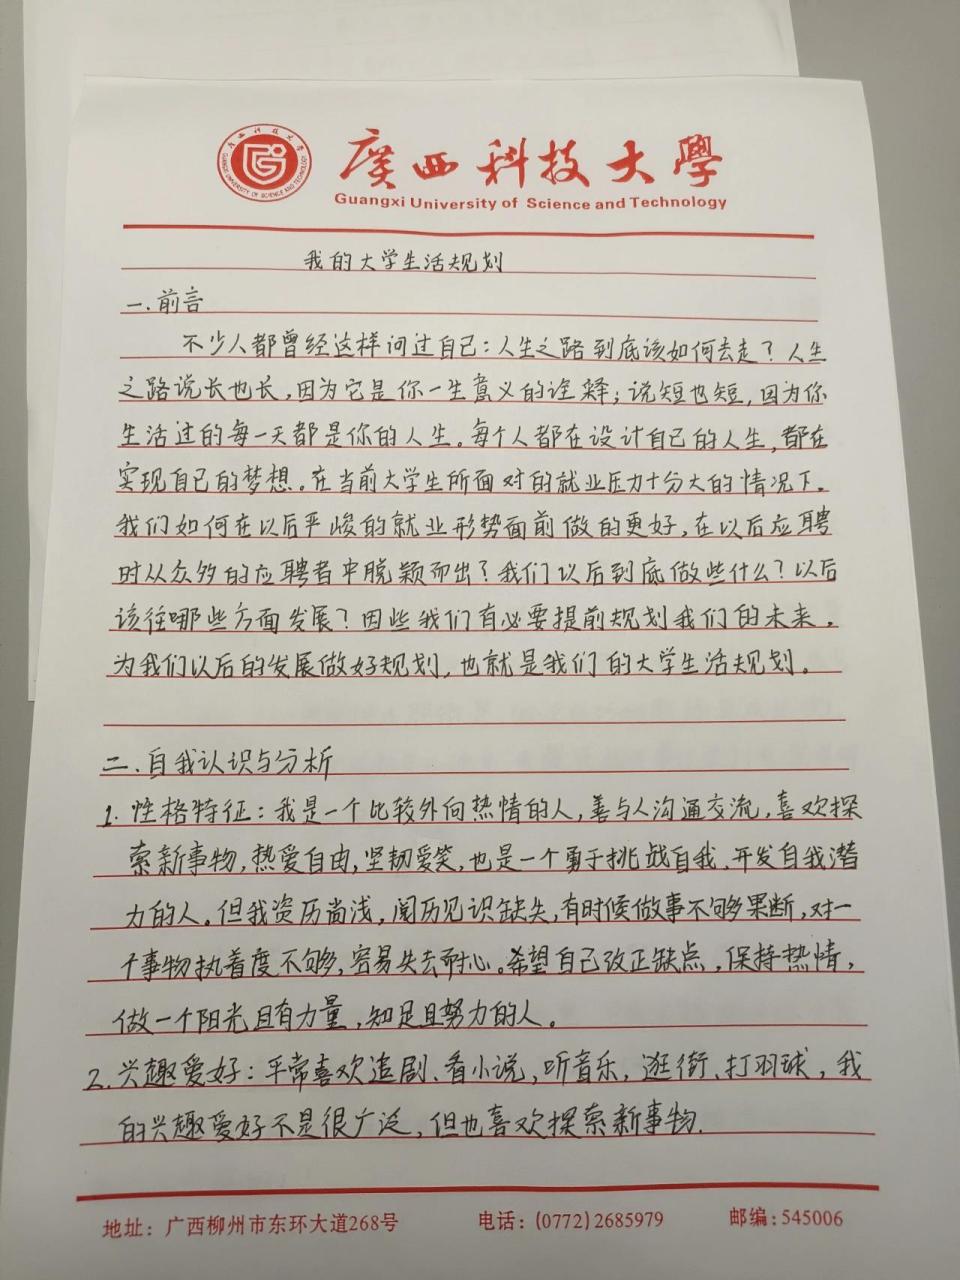 广西科技大学
GUANGXI UNIVERSITY OF SCIENCE AND TECHNOLOGY
廣西科技大學
Guangxi University of Science and Technology
我的大学生活规划
一.前言
不少人都曾经这样问过自己：人生之路到底该如何去走？人生
之路说长也长，因为它是你一生意义的诠释；说短也短，因为你
生活过的每一天都是你的人生。每个人都在设计自己的人生，都在
实现自己的梦想。在当前大学生所面对的就业压力十分大的情况下。
我们如何在以后严峻的就业形势面前做的更好，在以后应聘
时从众多的应聘者中脱颖而出？我们以后到底做些什么？以后
该往哪些方面发展？因些我们有必要提前规划我们的未来，
为我们以后的发展做好规划，也就是我们的大学生活规划。
二.自我认识与分析
1.性格特征：我是一个比较外向热情的人，善与人沟通交流，喜欢探
索新事物，热爱自由，坚韧爱笑，也是一个勇于挑战自我，开发自我潜
力的人。但我资历尚浅，阅历见识缺失，有时候做事不够果断，对一
个事物执着度不够，容易失去耐心。希望自己改正缺点，保持热情，
做一个阳光且有力量，知足且努力的人。
2.兴趣爱好：平常喜欢追剧、看小说，听音乐，逛街、打羽球，我
的兴趣爱好不是很广泛，但也喜欢探索新事物.
地址：广西柳州市东环大道268号 电话：(0772)2685979 邮编：545006